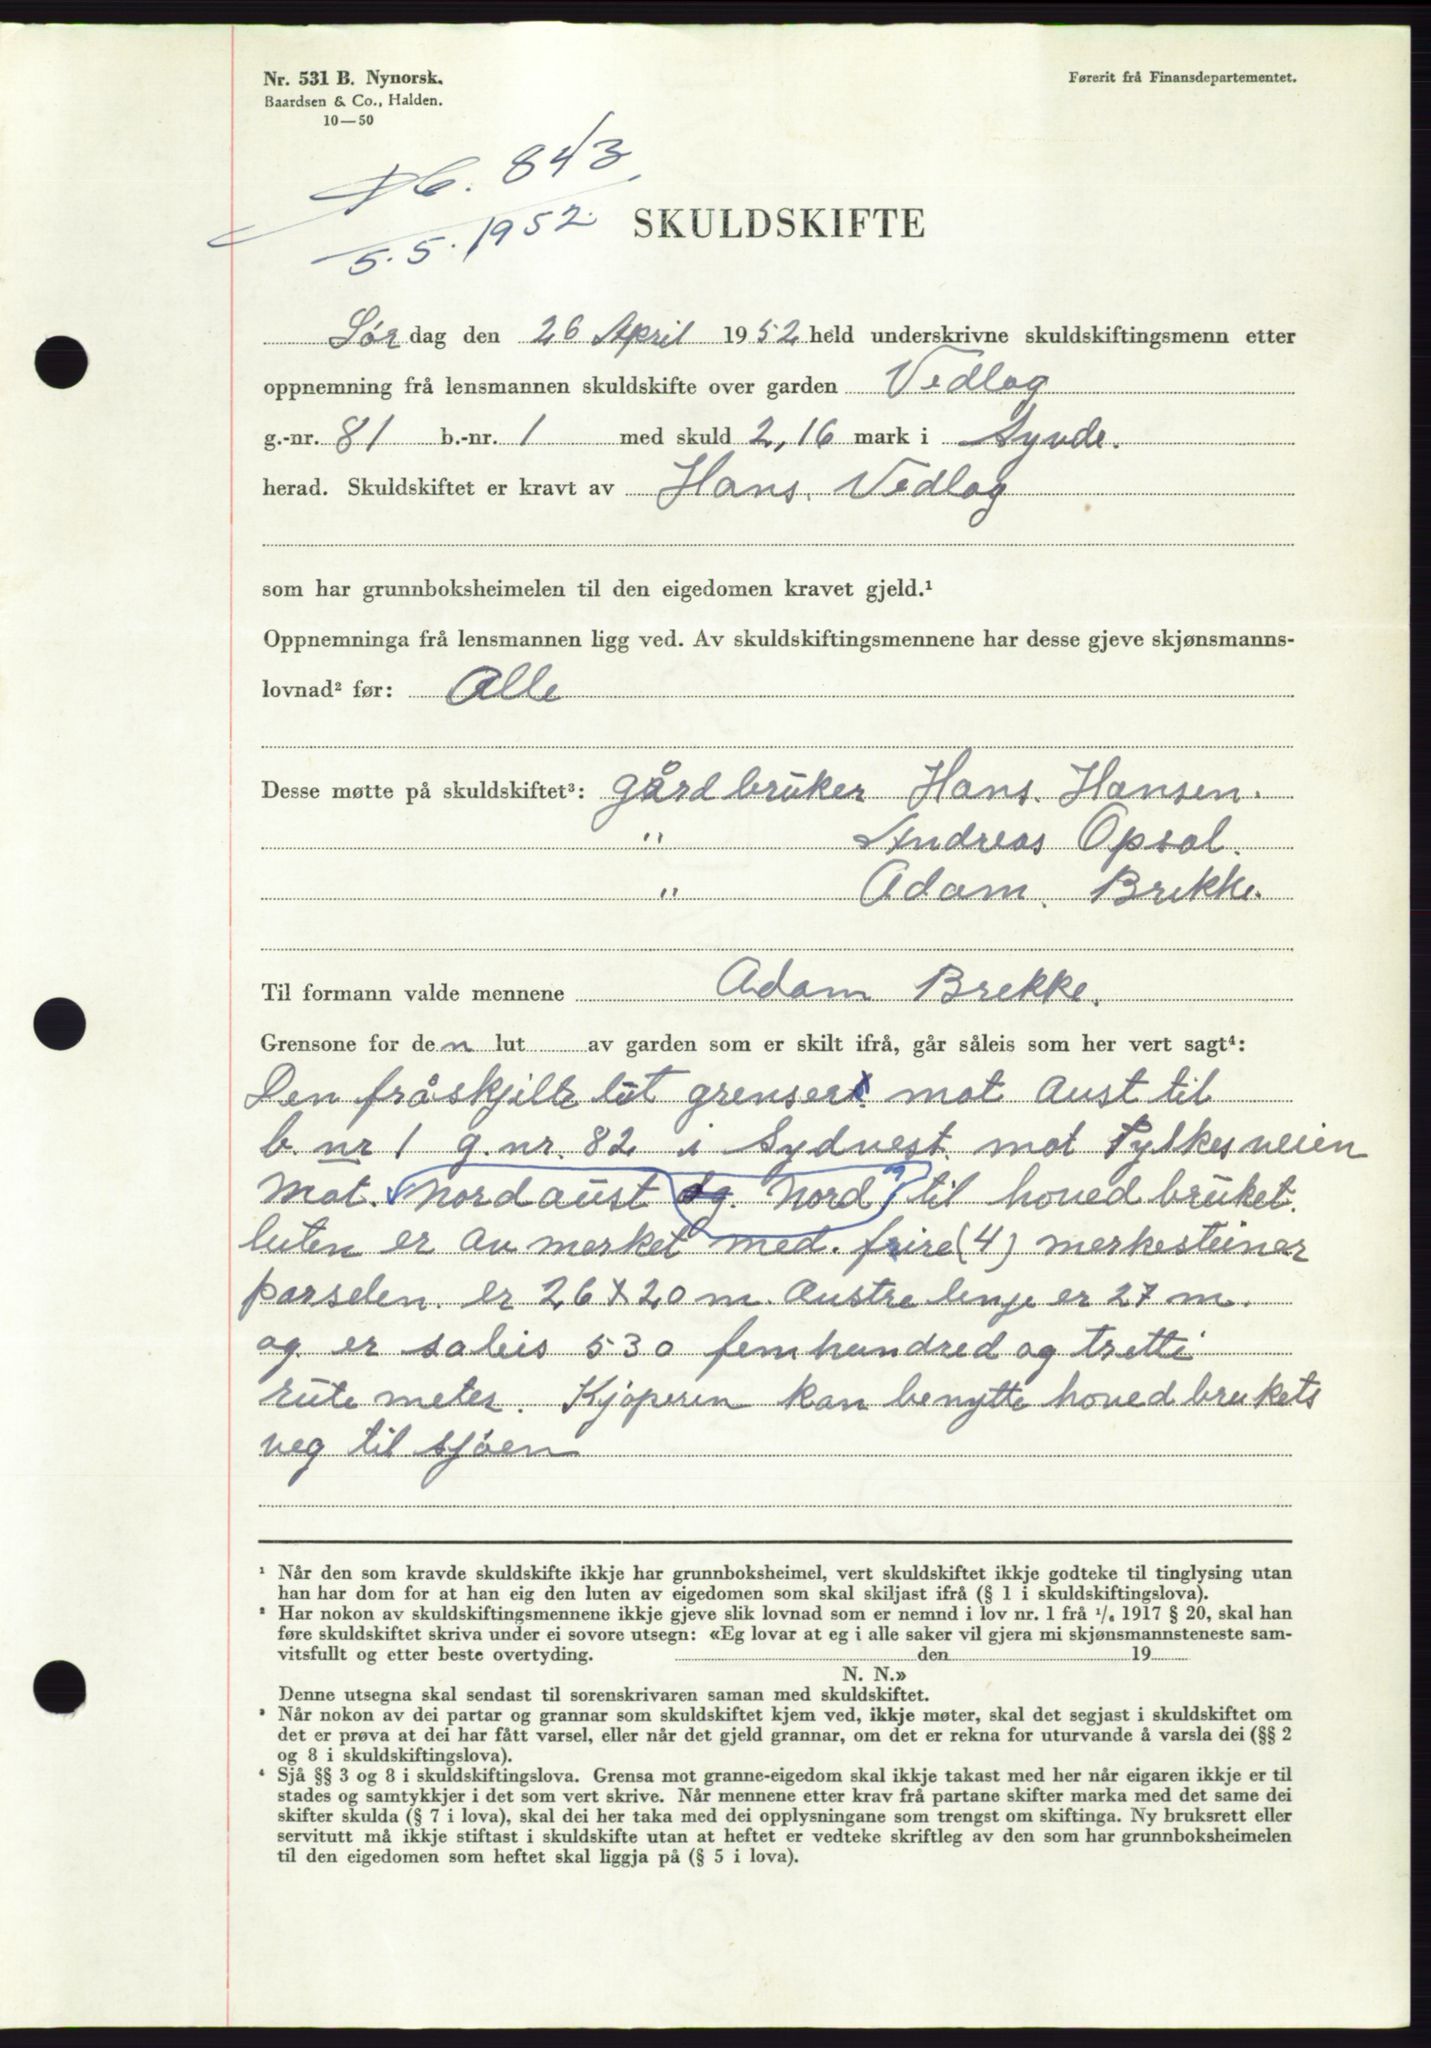 Nr. 531 B. Nynorsk.
Baardsen & Co., Halden.
10—50
Førerit frå Finansdepartementet.
Db. 843
5.5.1952.
SKULDSKIFTE
Lør dag den 26 April 1952 held underskrivne skuldskiftingsmenn etter
oppnemning frå lensmannen skuldskifte over garden Vedlog
g.-nr. 81 b.-nr. 1 med skuld 2,16 mark i Syvde.
herad. Skuldskiftet er kravt av Hans. Vedlog
som har grunnboksheimelen til den eigedomen kravet gjeld.¹
Oppnemninga frå lensmannen ligg ved. Av skuldskiftingsmennene har desse gjeve skjønsmanns-
lovnad² før: Alle
Desse møtte på skuldskiftet³: gårdbruker Hans. Hansen.
" Andreas Opsal.
" Adam. Brekke.
Til formann valde mennene Adam Brekke.
Grensone for den lut av garden som er skilt ifrå, går såleis som her vert sagt⁴:
Den fråskjilte lut grenser mot Aust til
b. nr 1 g. nr. 82 i Sydvest. mot Fylkesveien
mot. nordaust og. nord til hovedbruket.
luten er av merket med. fire (4) merkesteiner
parselen. er 26 x 20 m. Austre lenje er 27 m.
og er saleis 530 femhundred og tretti
rute meter. Kjøperen kan benytte hovedbrukets
veg til sjøen
¹ Når den som kravde skuldskifte ikkje har grunnboksheimel, vert skuldskiftet ikkje godteke til tinglysing utan
han har dom for at han eig den luten av eigedomen som skal skiljast ifrå (§ 1 i skuldskiftingslova).
² Har nokon av skuldskiftingsmennene ikkje gjeve slik lovnad som er nemnd i lov nr. 1 frå ¹/₆ 1917 § 20, skal han
føre skuldskiftet skriva under ei sovore utsegn: «Eg lovar at eg i alle saker vil gjera mi skjønsmannsteneste sam-
vitsfullt og etter beste overtyding. den 19
N. N.»
Denne utsegna skal sendast til sorenskrivaren saman med skuldskiftet.
³ Når nokon av dei partar og grannar som skuldskiftet kjem ved, ikkje møter, skal det segjast i skuldskiftet om
det er prøva at dei har fått varsel, eller når det gjeld grannar, om det er rekna for uturvande å varsla dei (§§ 2
og 8 i skuldskiftingslova).
⁴ Sjå §§ 3 og 8 i skuldskiftingslova. Grensa mot granne-eigedom skal ikkje takast med her når eigaren ikkje er til
stades og samtykkjer i det som vert skrive. Når mennene etter krav frå partane skifter marka med det same dei
skifter skulda (§ 7 i lova), skal dei her taka med dei opplysningane som trengst om skiftinga. Ny bruksrett eller
servitutt må ikkje stiftast i skuldskifte utan at heftet er vedteke skriftleg av den som har grunnboksheimelen
til den eigedomen som heftet skal liggja på (§ 5 i lova).